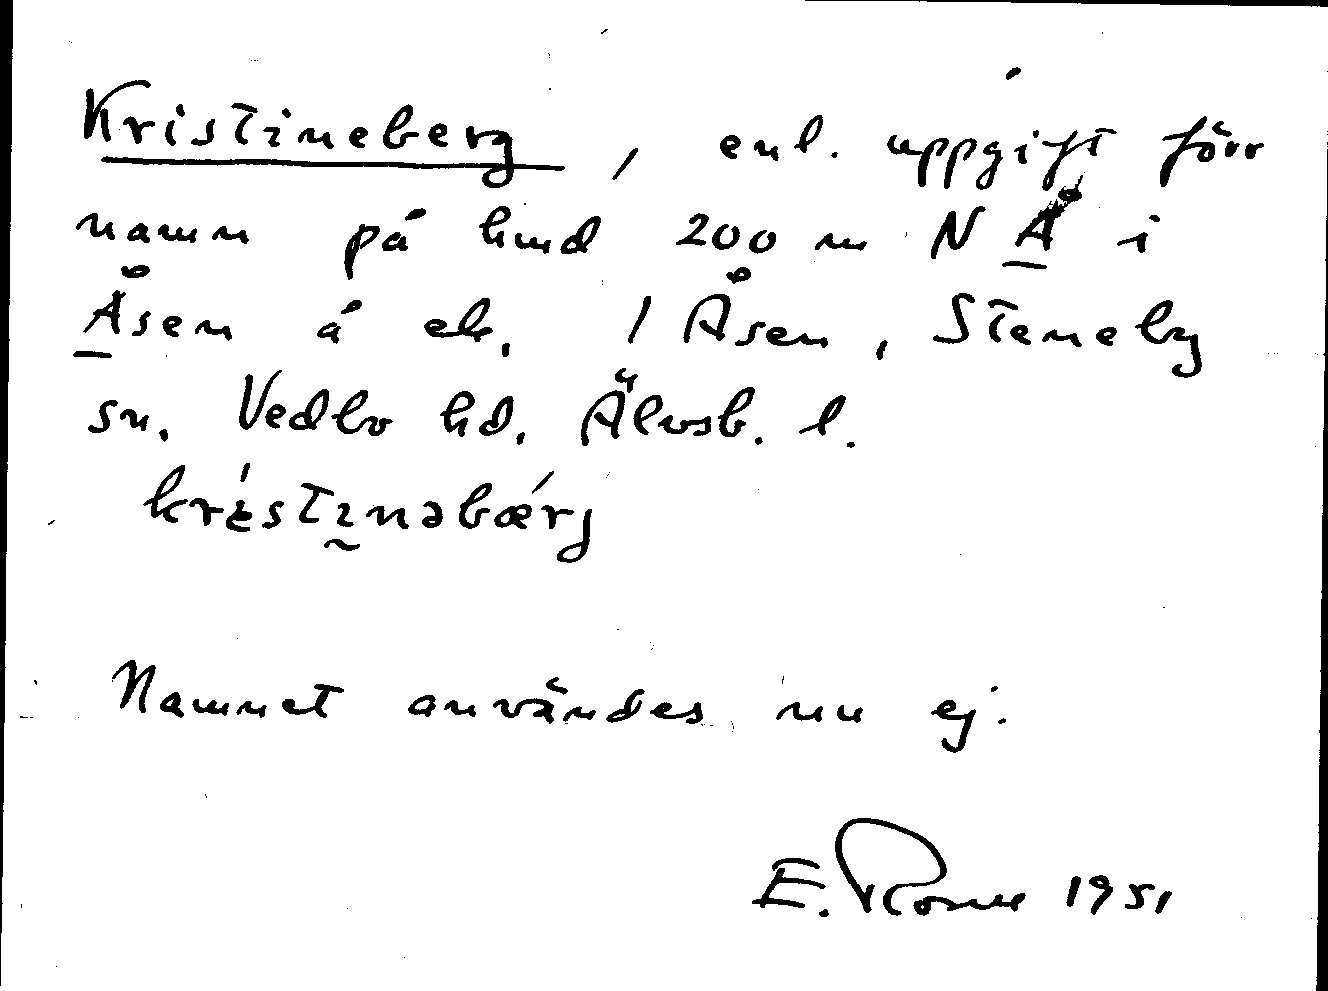 Kristineberg, enl. uppgift förr
namn på hmd 200 m N Å i
Åsen å ek. 1 Åsen, Steneby
sn. Vedbo hd. Älvsb. l.
Namnet användes nu ej.
E. 1951